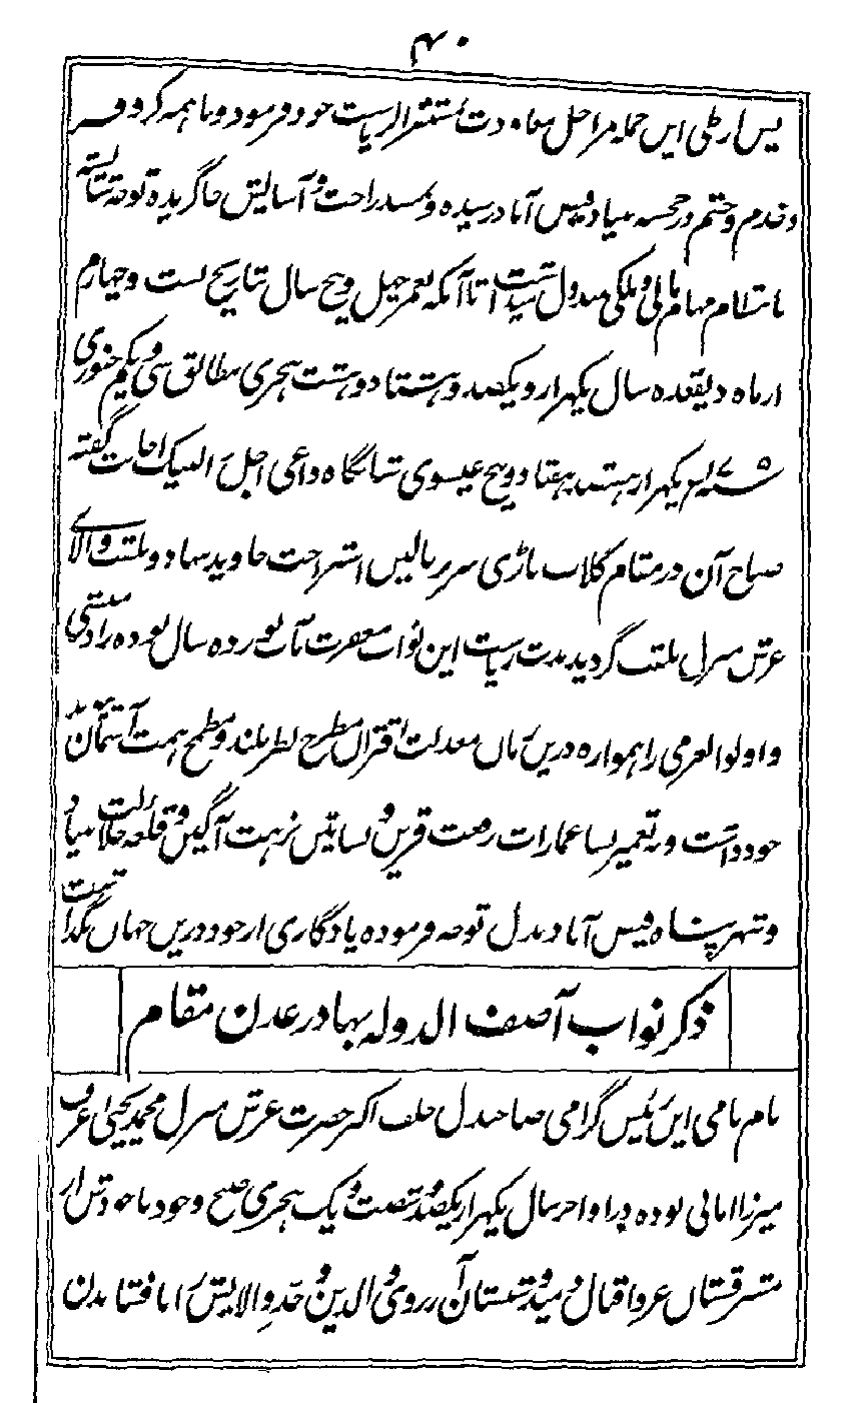 ۴۰
پس از طی این جمله مراحل معاودت بمستقر الریاست خود فرمود و با همه کر و فر
و خدم و حشم در خجسته بنیاد فیض آباد رسیده و بمسند راحت و آسایش جا گزیده توجه شایسته
بانتظام مهام مالی و ملکی مبذول میداشت تا آنکه بعمر چهل و پنج سال بتاریخ بست و چهارم
از ماه ذیقعده سال یکهزار و یکصد و هشتاد و هشت هجری مطابق سی و یکم جنوری
۱۷۷۵ یکهزار و هفتصد و هفتاد و پنج عیسوی شبانگاه داعی اجل را لبیک اجابت گفته
صباح آن در مقام گلاب باڑی سر ببالین استراحت جاوید نهاد و بلقب والای
عرش منزل ملقب گردید مدت ریاست این نواب مغفرت مآب نوزده سال بوده رادمنشی
و اولوالعزمی را همواره درین زمان معدلت اقتران مطرح نظر بلند و مطمح همت آسمان پیوند
خود داشت و به تعمیر بسا عمارات رفعت قرین و بساتین نزهت آگین و قلعه جلالت بنیاد
و شهر پناه فیض آباد بدل توجه فرموده یادگاری از خود درین جهان بگذاشت
ذکر نواب آصف الدوله بهادر عدن مقام
نام نامی این رئیس گرامی صاحبدل خلف اکبر حضرت عرش منزل محمد یحیی عرف
میرزا امانی بوده در اواخر سال یکهزار و یکصد و شصت و یک هجری صبح وجود با جودش از
مشرقستان عز و اقبال دمید و شبستان آرزوی والدین و جد والایش را بافتاب بدن